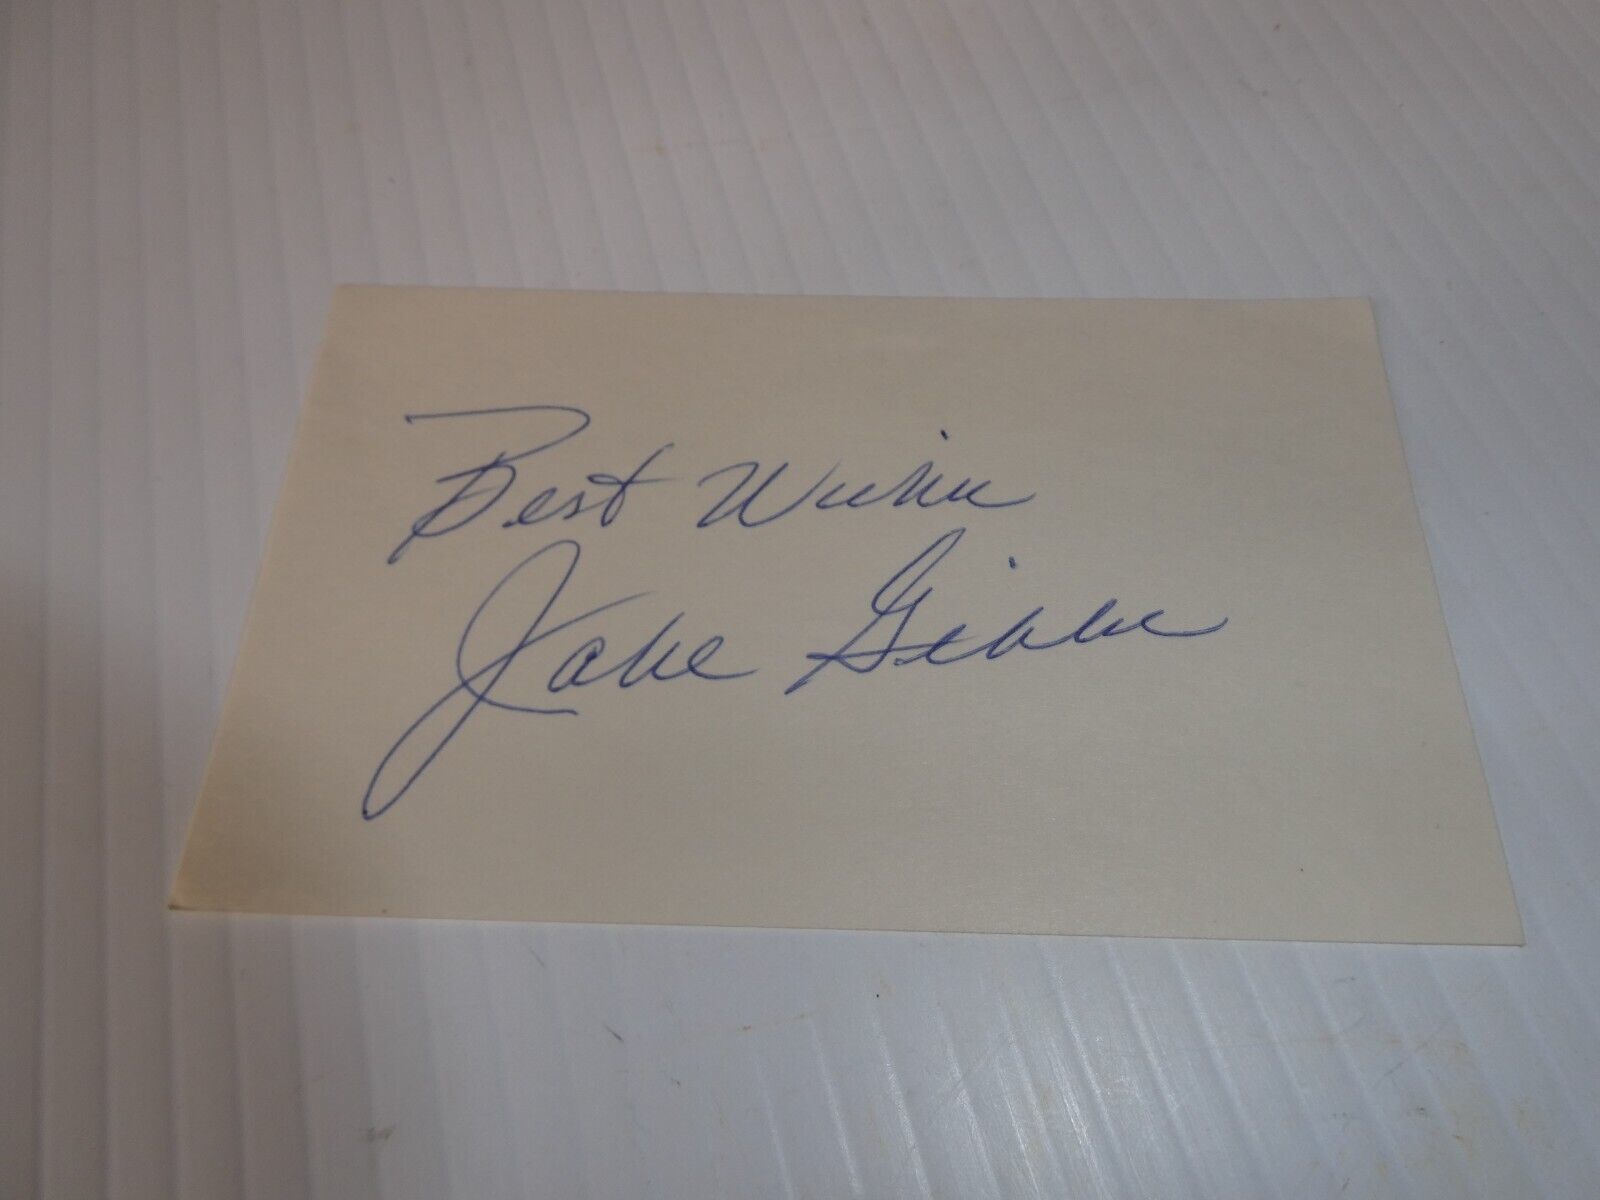 Best Wishes
Jake Gibbs